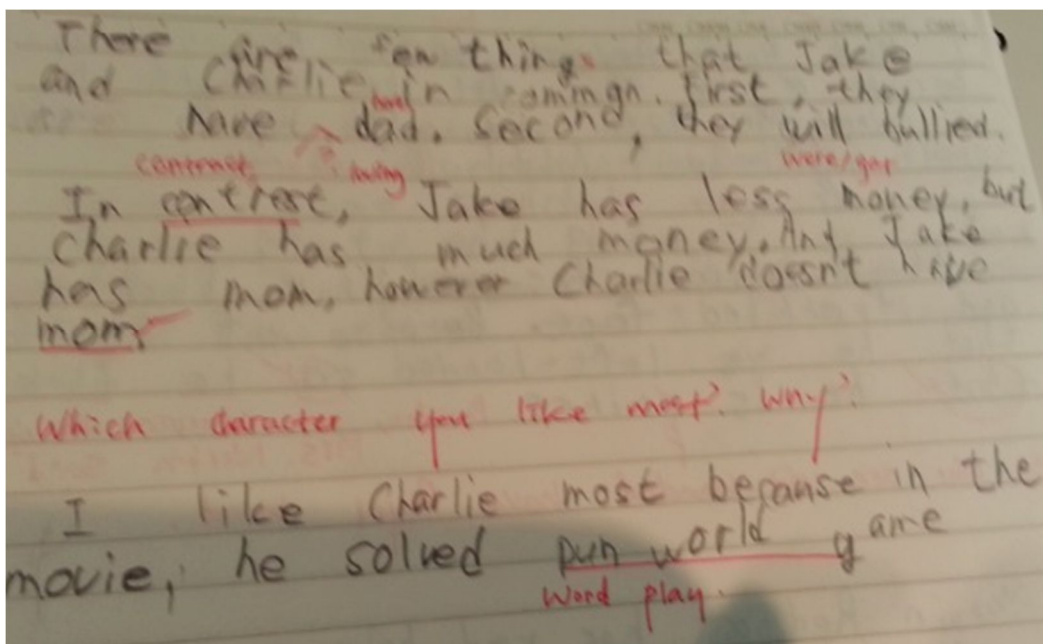 There are few things that Jake
and Charlie in comingn. First, they
have dad. Second, they will bullied.
were/got
In contrest, Jake has less money, but
Charlie has much money. And, Jake
has mom, however Charlie doesn't have
mom
Which character you like most? Why?
I like Charlie most because in the
movie, he solved pun world game
word play.